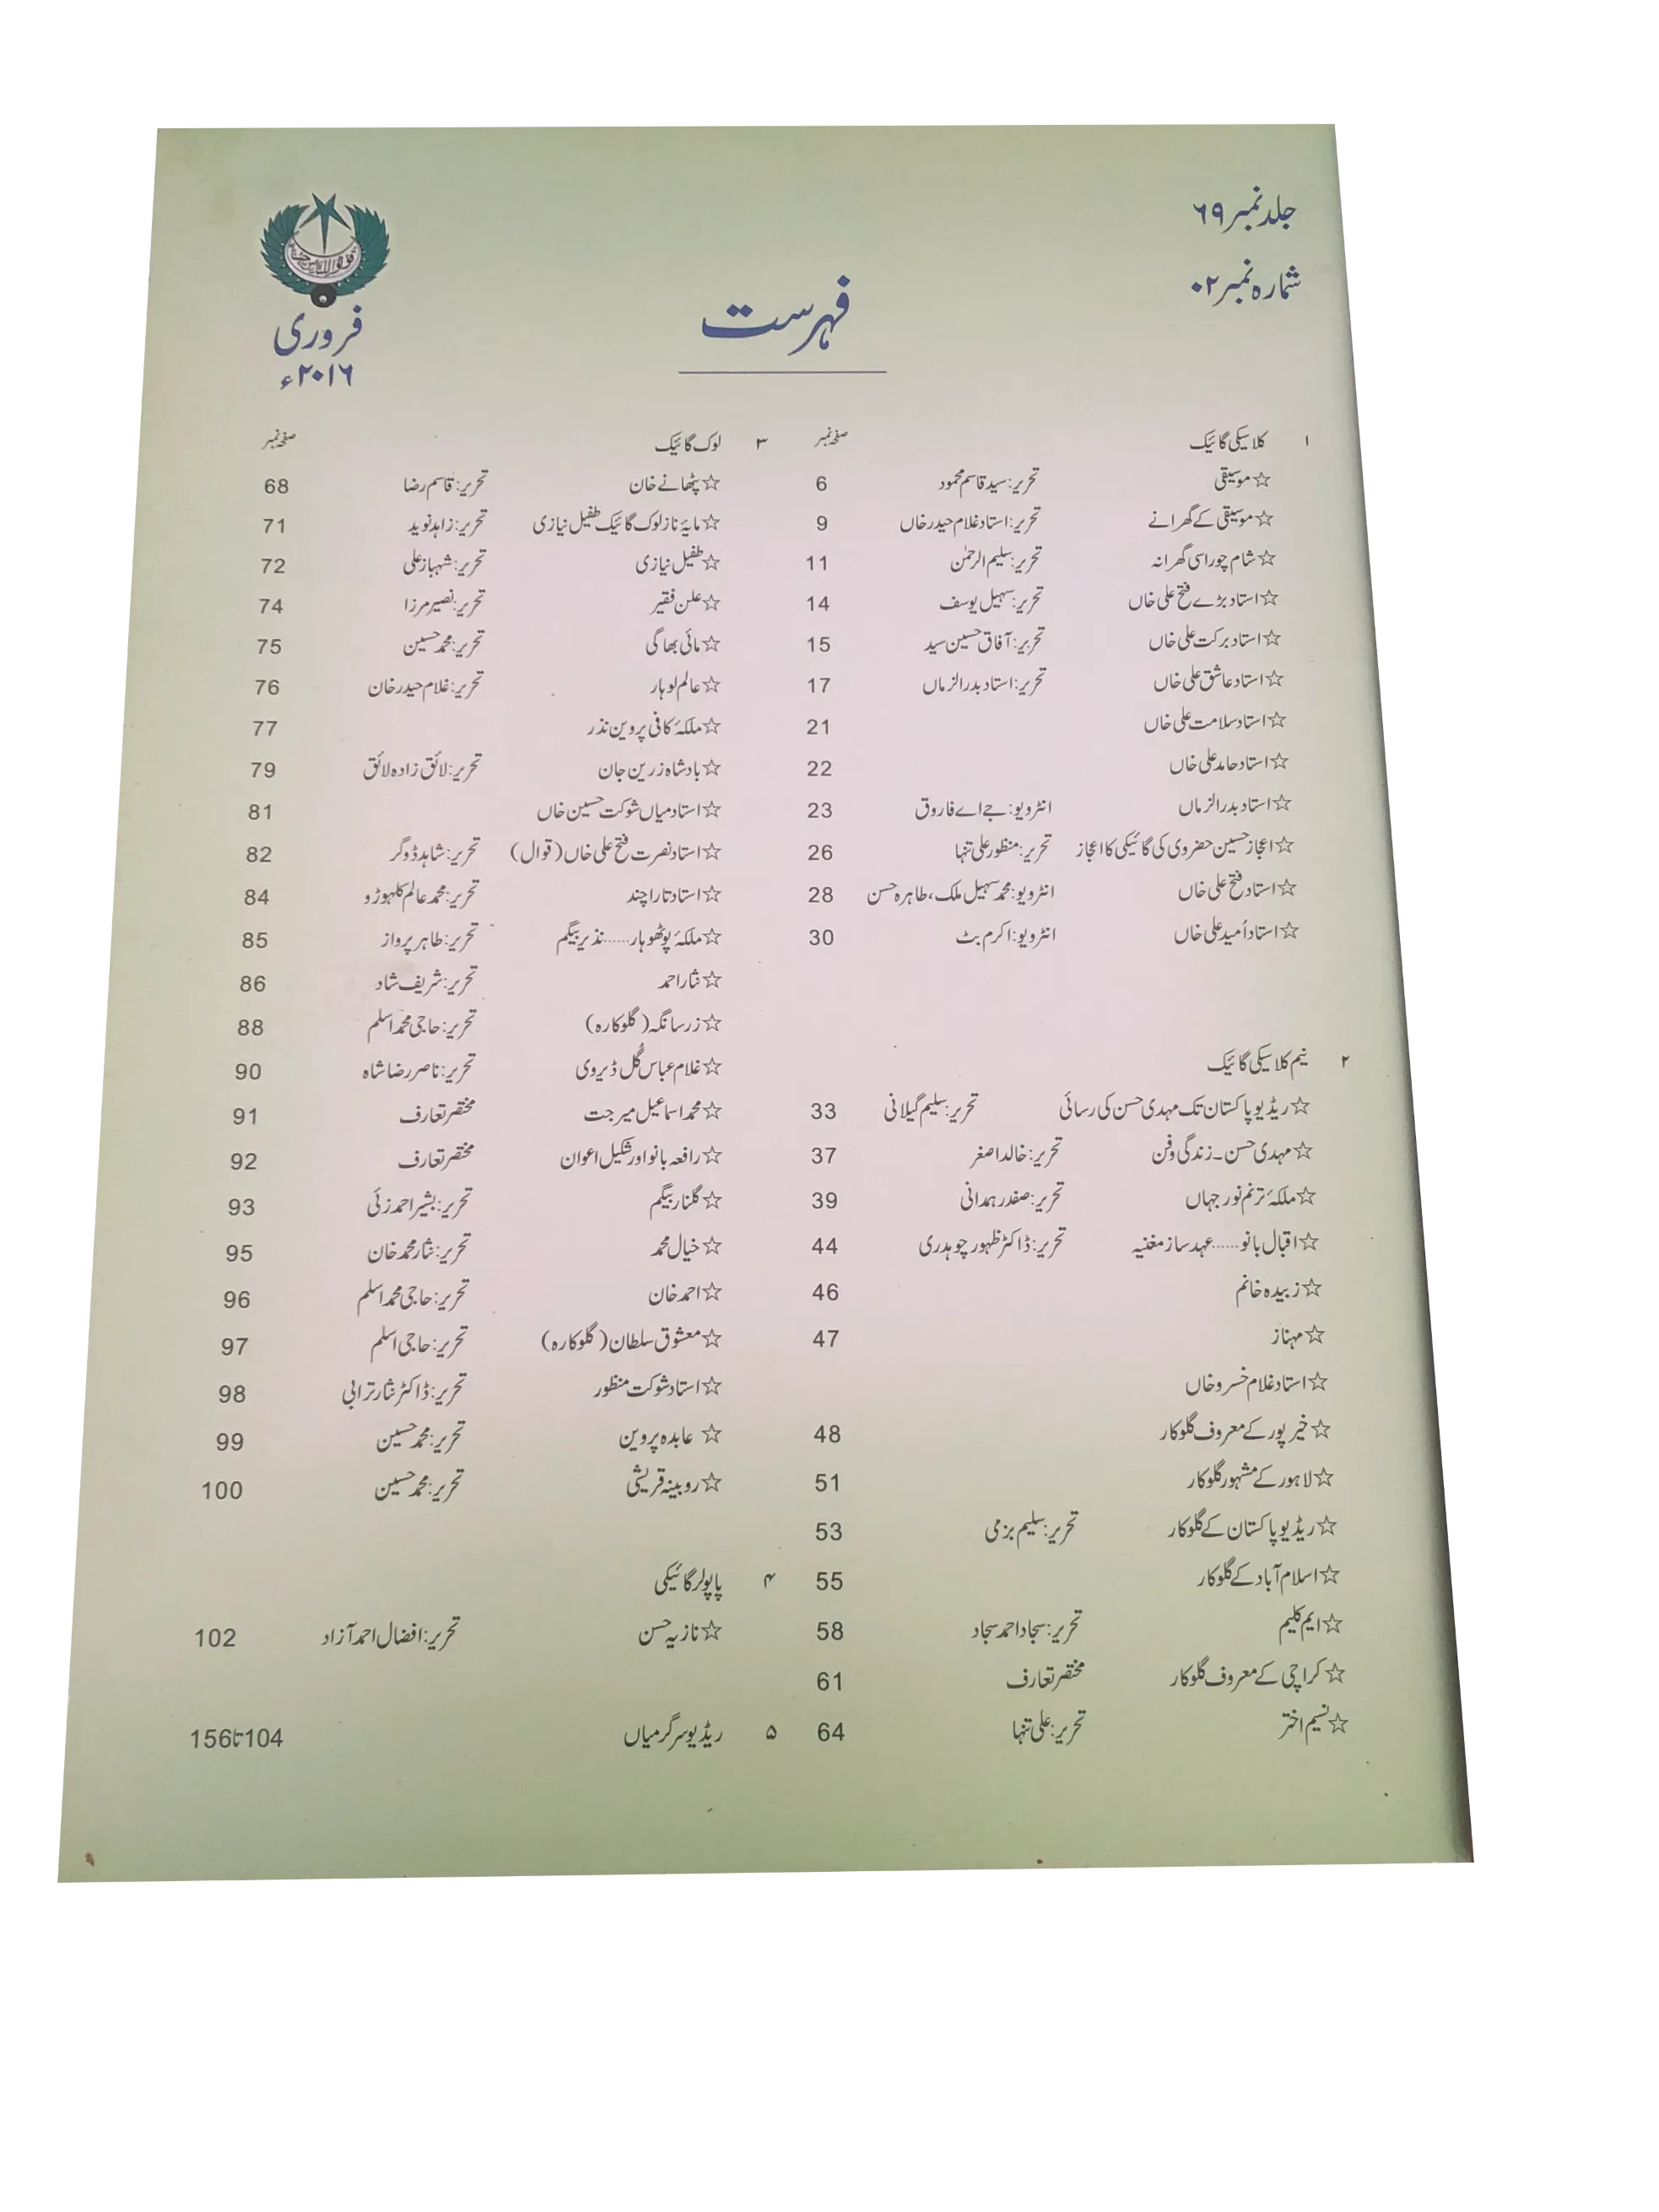 جلد نمبر ۶۹
شمارہ نمبر ۰۲
فروری
۲۰۱۶ء
فہرست
۱ کلاسیکی گائیک صفحہ نمبر
☆موسیقی تحریر: سید قاسم محمود 6
☆موسیقی کے گھرانے تحریر: استاد غلام حیدر خاں 9
☆شام چوراسی گھرانہ تحریر: سلیم الرحمٰن 11
☆استاد بڑے فتح علی خاں تحریر: سہیل یوسف 14
☆استاد برکت علی خاں تحریر: آفاق حسین سید 15
☆استاد عاشق علی خاں تحریر: استاد بدرالزماں 17
☆استاد سلامت علی خاں 21
☆استاد حامد علی خاں 22
☆استاد بدرالزماں انٹرویو: جے اے فاروق 23
☆اعجاز حسین حضروی کی گائیکی کا اعجاز تحریر: منظور علی تنہا 26
☆استاد فتح علی خاں انٹرویو: محمد سہیل ملک، طاہرہ حسن 28
☆استاد اُمید علی خاں انٹرویو: اکرم بٹ 30
۲ نیم کلاسیکی گائیک
☆ریڈیو پاکستان تک مہدی حسن کی رسائی تحریر: سلیم گیلانی 33
☆مہدی حسن۔زندگی و فن تحریر: خالد اصغر 37
☆ملکۂ ترنم نور جہاں تحریر: صفدر ہمدانی 39
☆اقبال بانو......عہد ساز مغنیہ تحریر: ڈاکٹر ظہور چوہدری 44
☆زبیدہ خانم 46
☆مہناز 47
☆استاد غلام خسرو خاں
☆خیر پور کے معروف گلوکار 48
☆لاہور کے مشہور گلوکار 51
☆ریڈیو پاکستان کے گلوکار تحریر: سلیم بزمی 53
☆اسلام آباد کے گلوکار 55
☆ایم کلیم تحریر: سجاد احمد سجاد 58
☆کراچی کے معروف گلوکار مختصر تعارف 61
☆نسیم اختر تحریر: علی تنہا 64
۳ لوک گائیک صفحہ نمبر
☆پٹھانے خان تحریر: قاسم رضا 68
☆مایۂ ناز لوک گائیک طفیل نیازی تحریر: زاہد نوید 71
☆طفیل نیازی تحریر: شہباز علی 72
☆علن فقیر تحریر: نصیر مرزا 74
☆مائی بھاگی تحریر: محمد حسین 75
☆عالم لوہار تحریر: غلام حیدر خان 76
☆ملکۂ کافی پروین نذر 77
☆بادشاہ زرین جان تحریر: لائق زادہ لائق 79
☆استاد میاں شوکت حسین خاں 81
☆استاد نصرت فتح علی خاں (قوال) تحریر: شاہد ڈوگر 82
☆استاد تارا چند تحریر: محمد عالم کلہوڑو 84
☆ملکۂ پوٹھوہار......نذیر بیگم تحریر: طاہر پرواز 85
☆نثار احمد تحریر: شریف شاد 86
☆زرسانگہ (گلوکارہ) تحریر: حاجی محمد اسلم 88
☆غلام عباس گُل ڈیروی تحریر: ناصر رضا شاہ 90
☆محمد اسماعیل میر جت مختصر تعارف 91
☆رافعہ بانو اور شکیل اعوان مختصر تعارف 92
☆گلنار بیگم تحریر: بشیر احمد زئی 93
☆خیال محمد تحریر: نثار محمد خان 95
☆احمد خان تحریر: حاجی محمد اسلم 96
☆معشوق سلطان (گلوکارہ) تحریر: حاجی اسلم 97
☆استاد شوکت منظور تحریر: ڈاکٹر نثار ترابی 98
☆ عابدہ پروین تحریر: محمد حسین 99
☆روبینہ قریشی تحریر: محمد حسین 100
۴ پاپولر گائیکی
☆نازیہ حسن تحریر: افضال احمد آزاد 102
۵ ریڈیو سرگرمیاں 104 تا 156